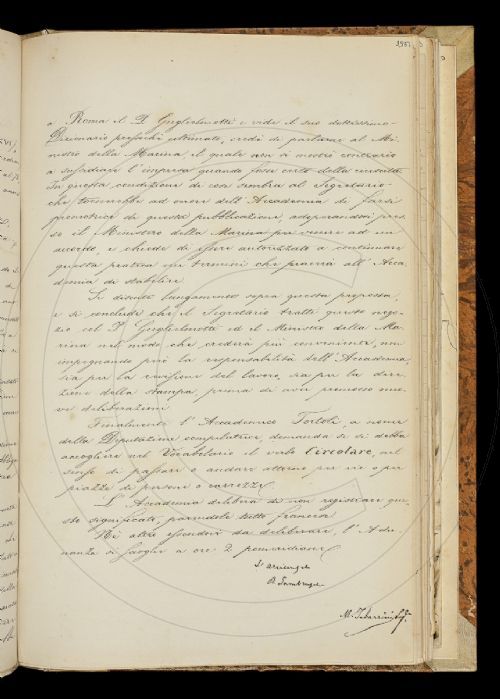 a Roma il P. Guglielmotti e vide il suo dottissimo
Dizionario pressochè ultimato, credè di parlarne al Mi-
nistro della Marina, il quale non si mostrò contrario
a sussidiare l'impresa quando fosse certo della riuscita.
In questa condizione di cose sembra al Segretario
che tornerebbe ad onore dell'Accademia di farsi
promotrice di questa pubblicazione, adoperandosi pres-
so il Ministero della Marina per venire ad un
accordo, e chiede di essere autorizzato a continuare
questa pratica nei termini che piacerà all'Acca-
demia di stabilire.
Si discute lungamente sopra questa proposta,
e si conclude che il Segretario tratti questo nego-
zio col P. Guglielmotti ed il Ministro della Ma-
rina nel modo che crederà più conveniente, non
impegnando però la responsabilità dell'Accademia,
sia per la revisione del lavoro, sia per la dire-
zione della stampa, prima di aver promosso nuo-
ve deliberazioni.
Finalmente l'Accademico Tortoli, a nome
della Deputazione compilatrice, domanda se si debba
accogliere nel Vocabolario il verbo Circolare, nel
senso di passare o andare attorno per vie o per
piazze di persone o carrozze.
L'Accademia delibera di non registrare que-
sto significato, parendole tutto francese.
Nè altro essendovi da deliberare, l'Adu-
nanza si scioglie a ore 2 pomeridiane.